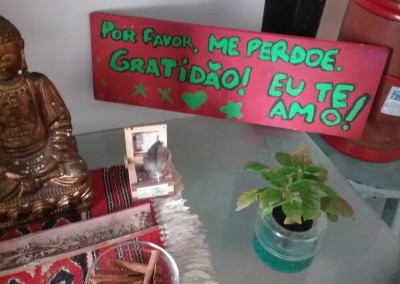 POR FAVOR, ME PERDOE.
GRATIDÃO! EU TE
AMO!